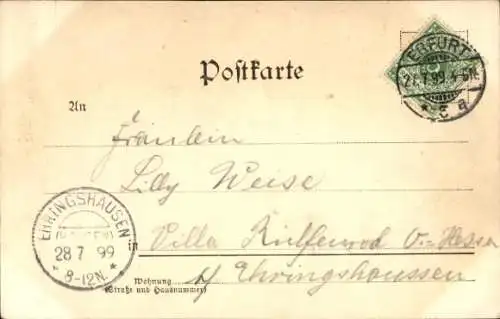 Postkarte
ERFURT
27.7.99. 4-5N.
* c a
An
Fräulein
Lilly Weise
EHRINGSHAUSEN
28 7 99
* 8-12N. *
in Villa
Wohnung
(Straße und Hausnummer)
b/ Ehringshaussen